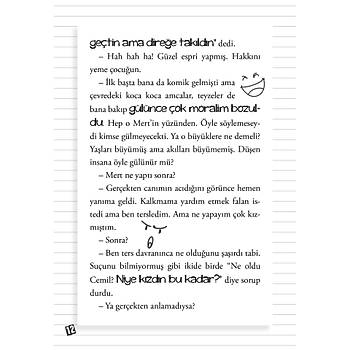 geçtin ama direğe takıldın" dedi.
– Hah hah ha! Güzel espri yapmış. Hakkını
yeme çocuğun.
– İlk başta bana da komik gelmişti ama
çevredeki koca koca amcalar, teyzeler de
bana bakıp gülünce çok moralim bozul-
du. Hep o Mert'in yüzünden. Öyle söylemesey-
di kimse gülmeyecekti. Ya o büyüklere ne demeli?
Yaşları büyümüş ama akılları büyümemiş. Düşen
insana öyle gülünür mü?
– Mert ne yaptı sonra?
– Gerçekten canımın acıdığını görünce hemen
yanıma geldi. Kalkmama yardım etmek falan is-
tedi ama ben tersledim. Ama ne yapayım çok kız-
mıştım.
– Sonra?
– Ben ters davranınca ne olduğunu şaşırdı tabi.
Suçunu bilmiyormuş gibi ikide birde "Ne oldu
Cemil? Niye kızdın bu kadar?" diye sorup
durdu.
– Ya gerçekten anlamadıysa?
12